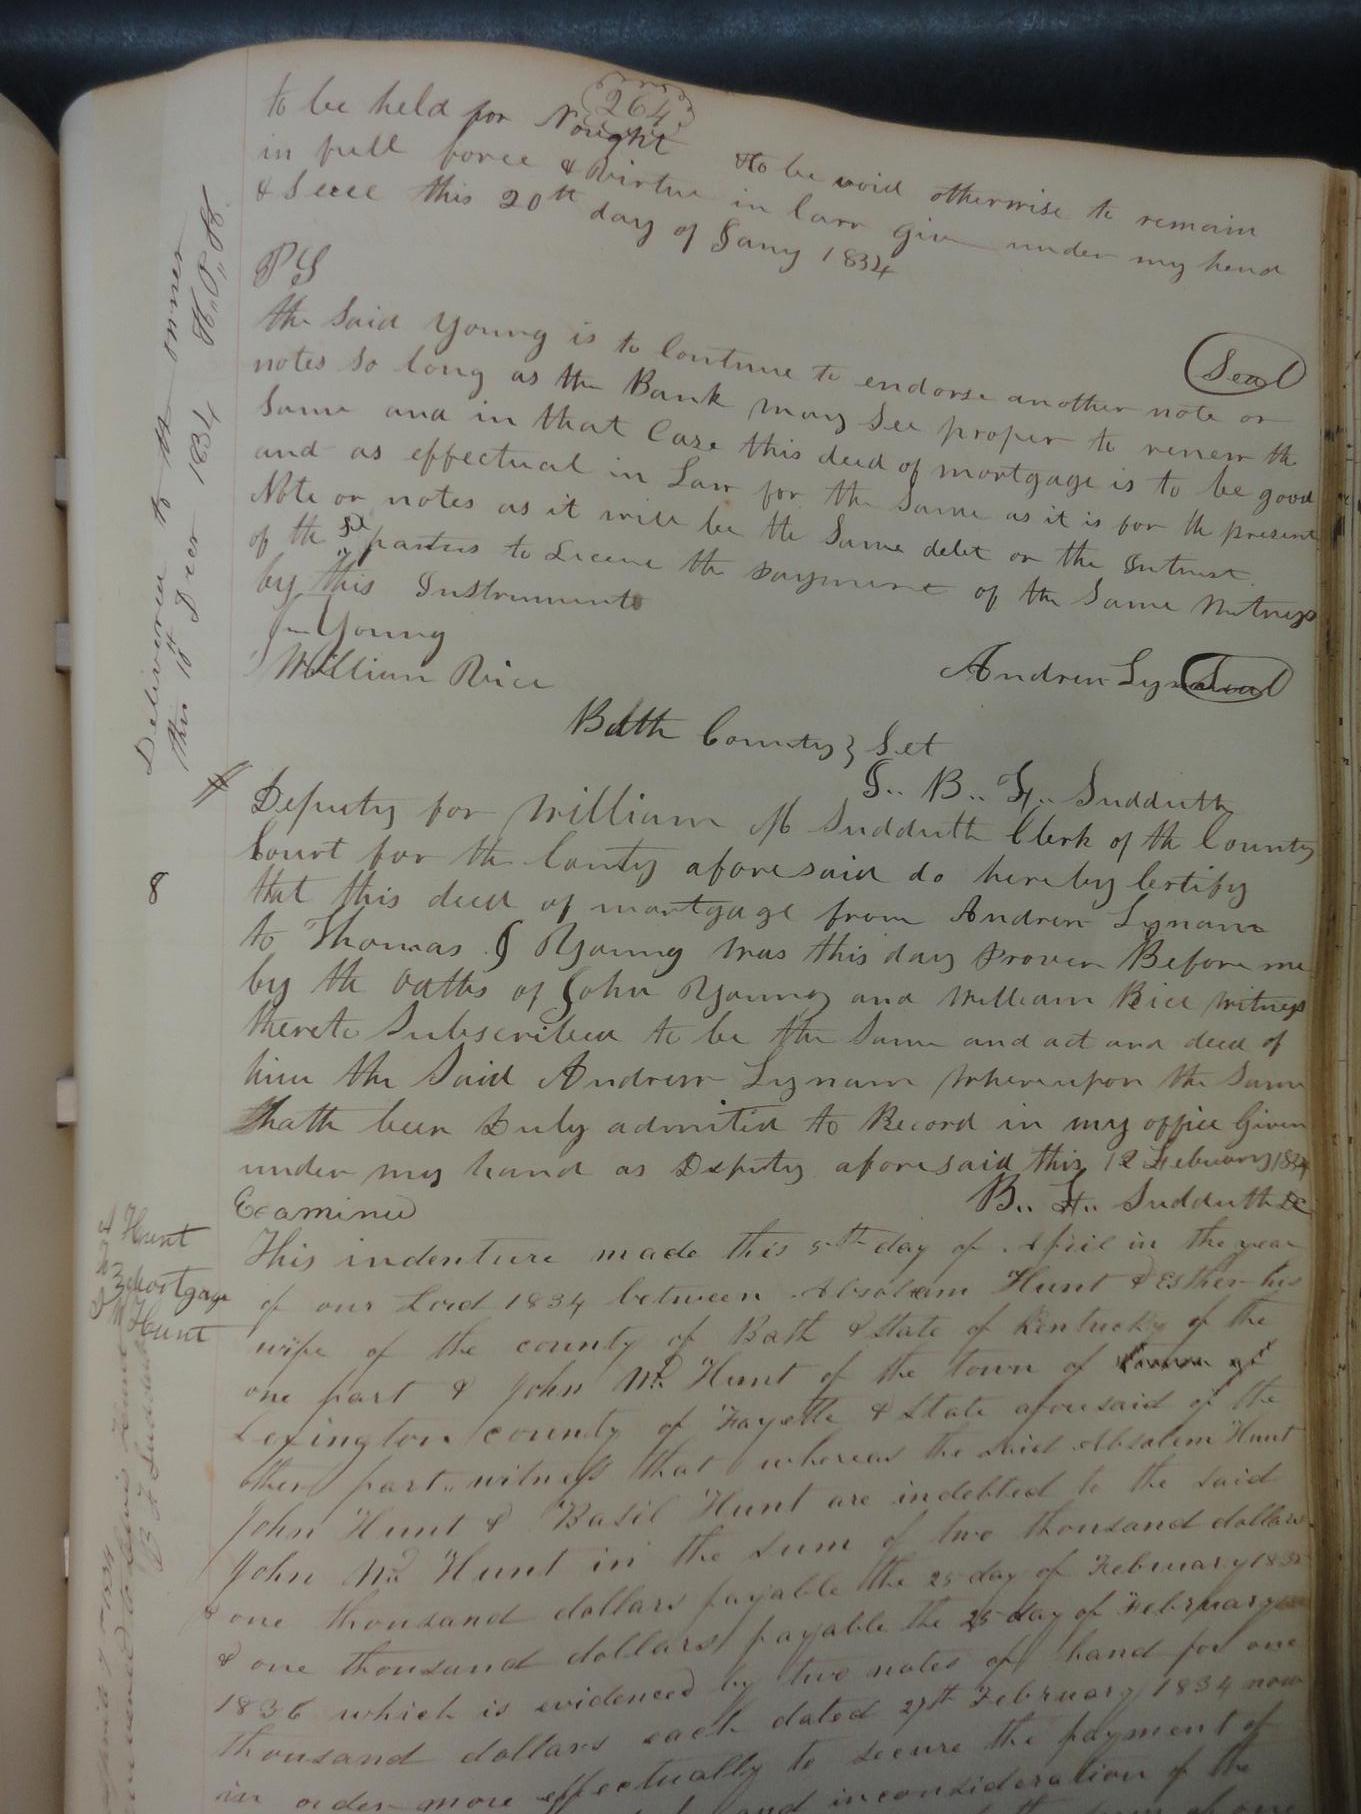 264
to be held for Nought to be void otherwise to remain
in full force & Virtue in law given under my hand
& Seal this 20th day of Jany 1834
PS
Seal
the Said Young is to Continue to endorse another note or
notes so long as the Bank may See proper to renew the
Same and in that Case this deed of mortgage is to be good
and as effectual in Law for the Same as it is for the present
Note or notes as it will be the Same debt or the Intrest
of the sd parties to Secure the payment of the Same Witness
by this Instrument
Jn Young
William Rice
Andrew Lynam Seal
Bath County } Set
I.. B.. F.. Sudduth
Deputy for William M Sudduth Clerk of the County
Court for the Conty aforesaid do hereby Certify
that this deed of mortgage from Andrew Lynam
to Thomas J Young was this day proven Before me
by the oaths of John Young and William Rice Witness
thereto Subscribed to be the Same and act and deed of
him the Said Andrew Lynam whereupon the Same
Hath been Duly admitted to Record in my office Given
under my hand as Deputy aforesaid this 12 Febuary 1834
Examined
B.. F.. Sudduth DC
This indenture made this 5th day of April in the year
of our Lord 1834 between Absolam Hunt & Esther his
wife of the county of Bath & State of Kentucky of the
one part & John Wd. Hunt of the town of
Lexington county of Fayette & State aforesaid of the
other part.. witness that whereas the said Absalem Hunt
John Hunt & Basil Hunt are indebted to the said
John Wd. Hunt in the sum of two thousand dollars
one thousand dollars payable the 25 day of February 1835
& one thousand dollars payable the 25 day of February
1836 which is evidenced by two notes of hand for one
thousand dollars each dated 27th February 1834 now
in order more effectually to secure the payment of
and inconsideration of the
Delivered to the owner
this 15th Decr 1834 H.. P.. H.
8
A Hunt
Mortgage
Hunt